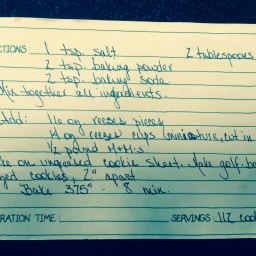 CTIONS 1 tsp. salt 2 tablespoons
2 tsp. baking powder
2 tsp. baking soda
Mix together all ingredients.
Add: 16 oz reeses pieces
14 oz reeses cups (miniature, cut in
1/2 pound M+M's
ke on ungreased cookie sheet. Make golf-ba
zed cookies, 2" apart
Bake 375° - 8 min.
RATION TIME: SERVINGS: 112 coo